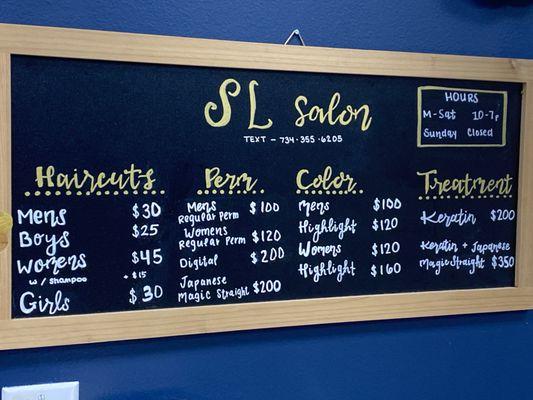 SL Salon
TEXT - 734-355-6205
HOURS
M-Sat 10-7p
Sunday Closed
Haircuts
Mens $30
Boys $25
Womens $45
w/ shampoo +$15
Girls $30
Perm
Mens
Regular Perm $100
Womens
Regular Perm $120
Digital $200
Japanese
Magic Straight $200
Color
Mens $100
Highlight $120
Womens $120
Highlight $160
Treatment
Keratin $200
Keratin + Japanese
Magic Straight $350